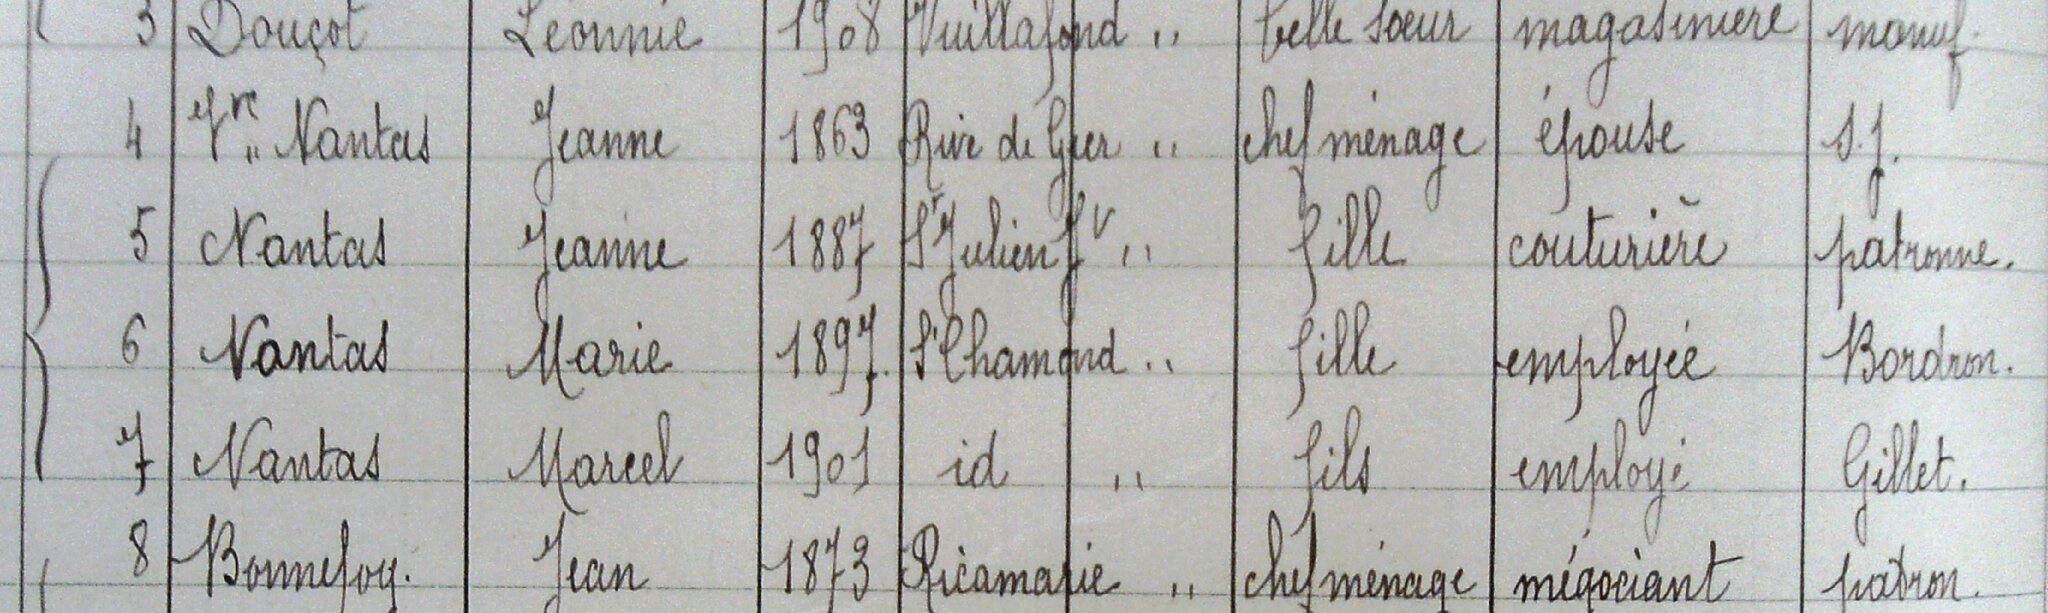 3 Douçot Léonnie 1908 Vuillafond " belle soeur magasinière manuf.
4 Vve Nantas Jeanne 1863 Rive de Gier " chef ménage épouse S.J.
5 Nantas Jeanne 1887 St Julien J " fille couturière patronne.
6 Nantas Marie 1897. St Chamond " fille employée Bordron.
7 Nantas Marcel 1901 id " fils employé Gillet.
8 Bonnefoy. Jean 1873 Ricamarie " chef ménage négociant patron.